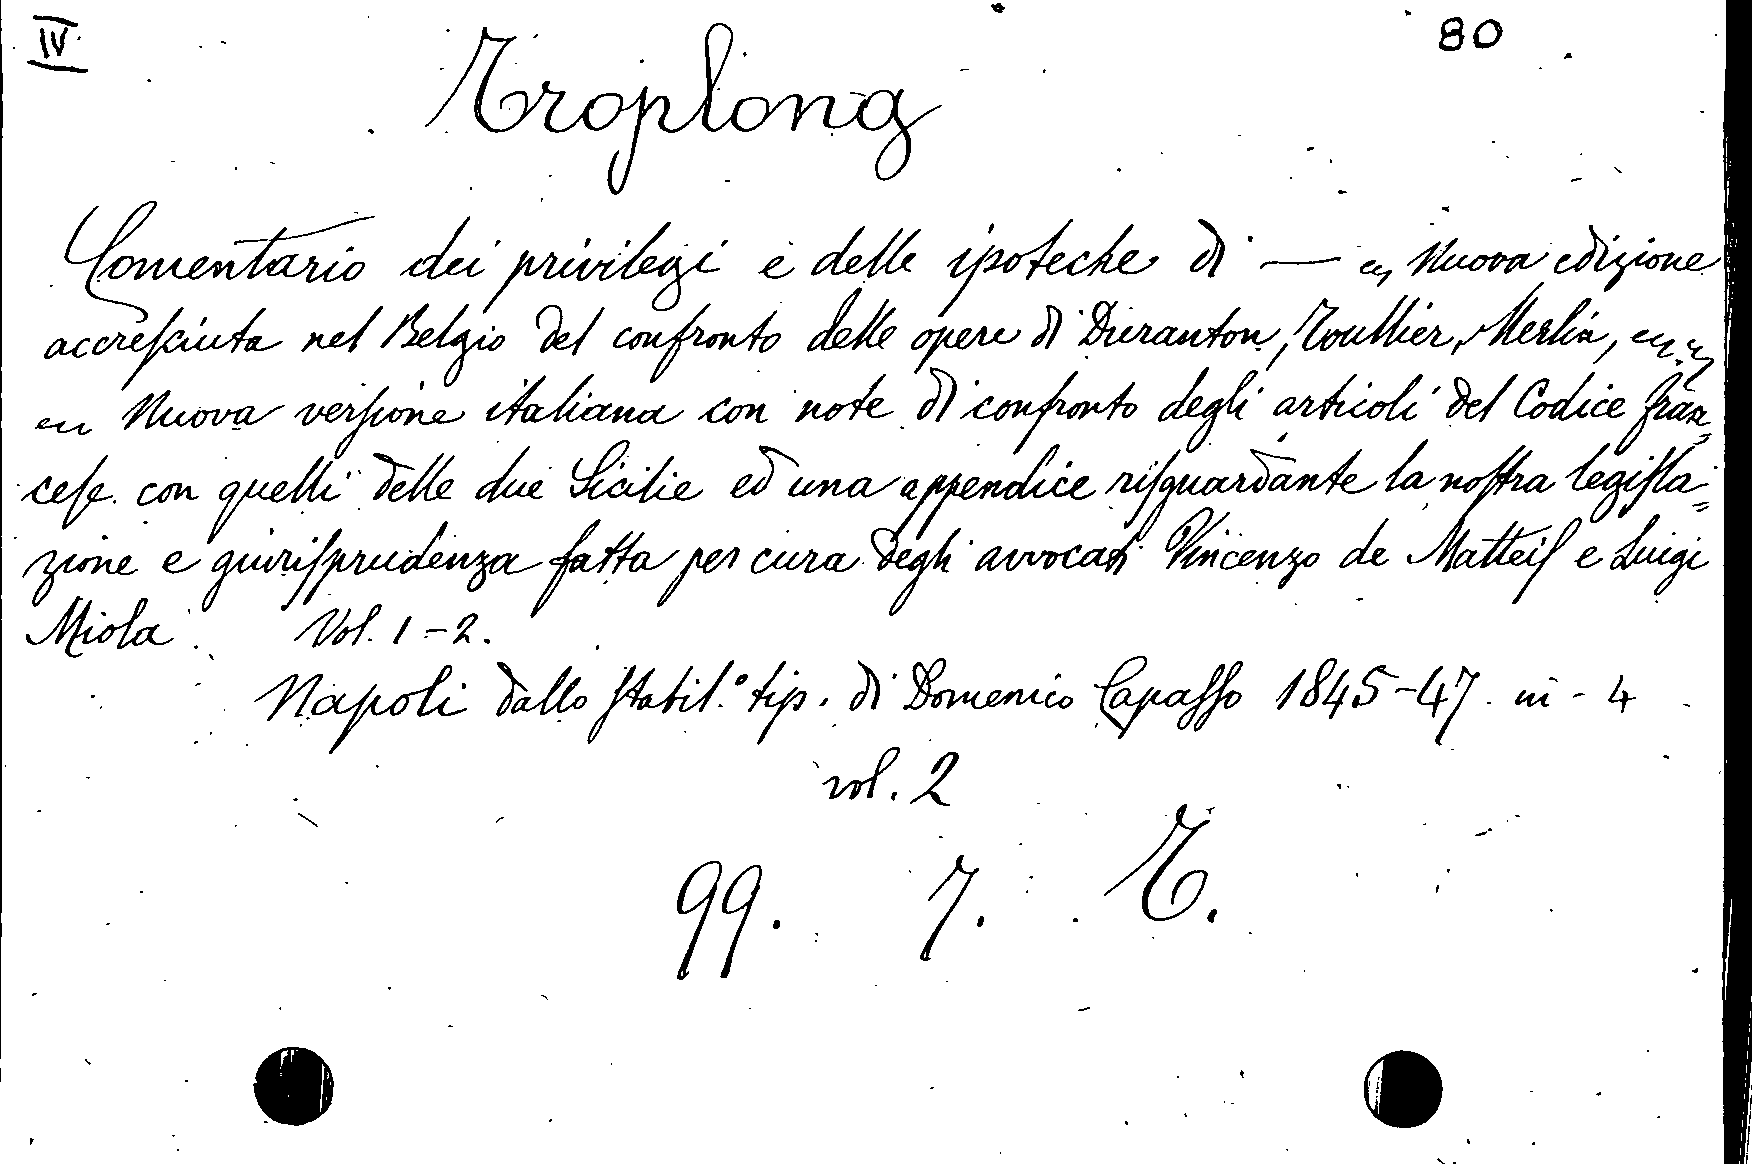 IV
80
Troplong
Comentario dei privilegi e delle ipoteche di — Nuova edizione
accresciuta nel Belgio del confronto delle opere di Duranton, Toullier, Merlin,
Nuova versione italiana con note di confronto degli articoli del Codice fran=
cese con quelli delle due Sicilie ed una appendice risguardante la nostra legisla=
zione e giurisprudenza fatta per cura degli avvocati Vincenzo de Matteis e Luigi
Miola. Vol. 1-2.
Napoli dallo stabil.° tip. di Domenico Capasso 1845-47. in-4
vol. 2
99. 7. T.